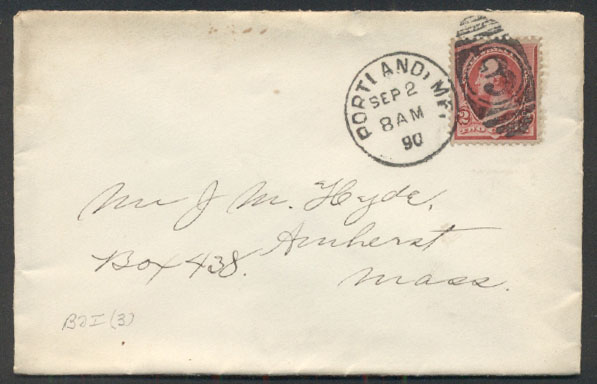 PORTLAND, ME.
SEP 2
8 AM
90
3
2 2
Mr J M. Hyde,
Amherst
Box 438.
Mass.
B21(3)